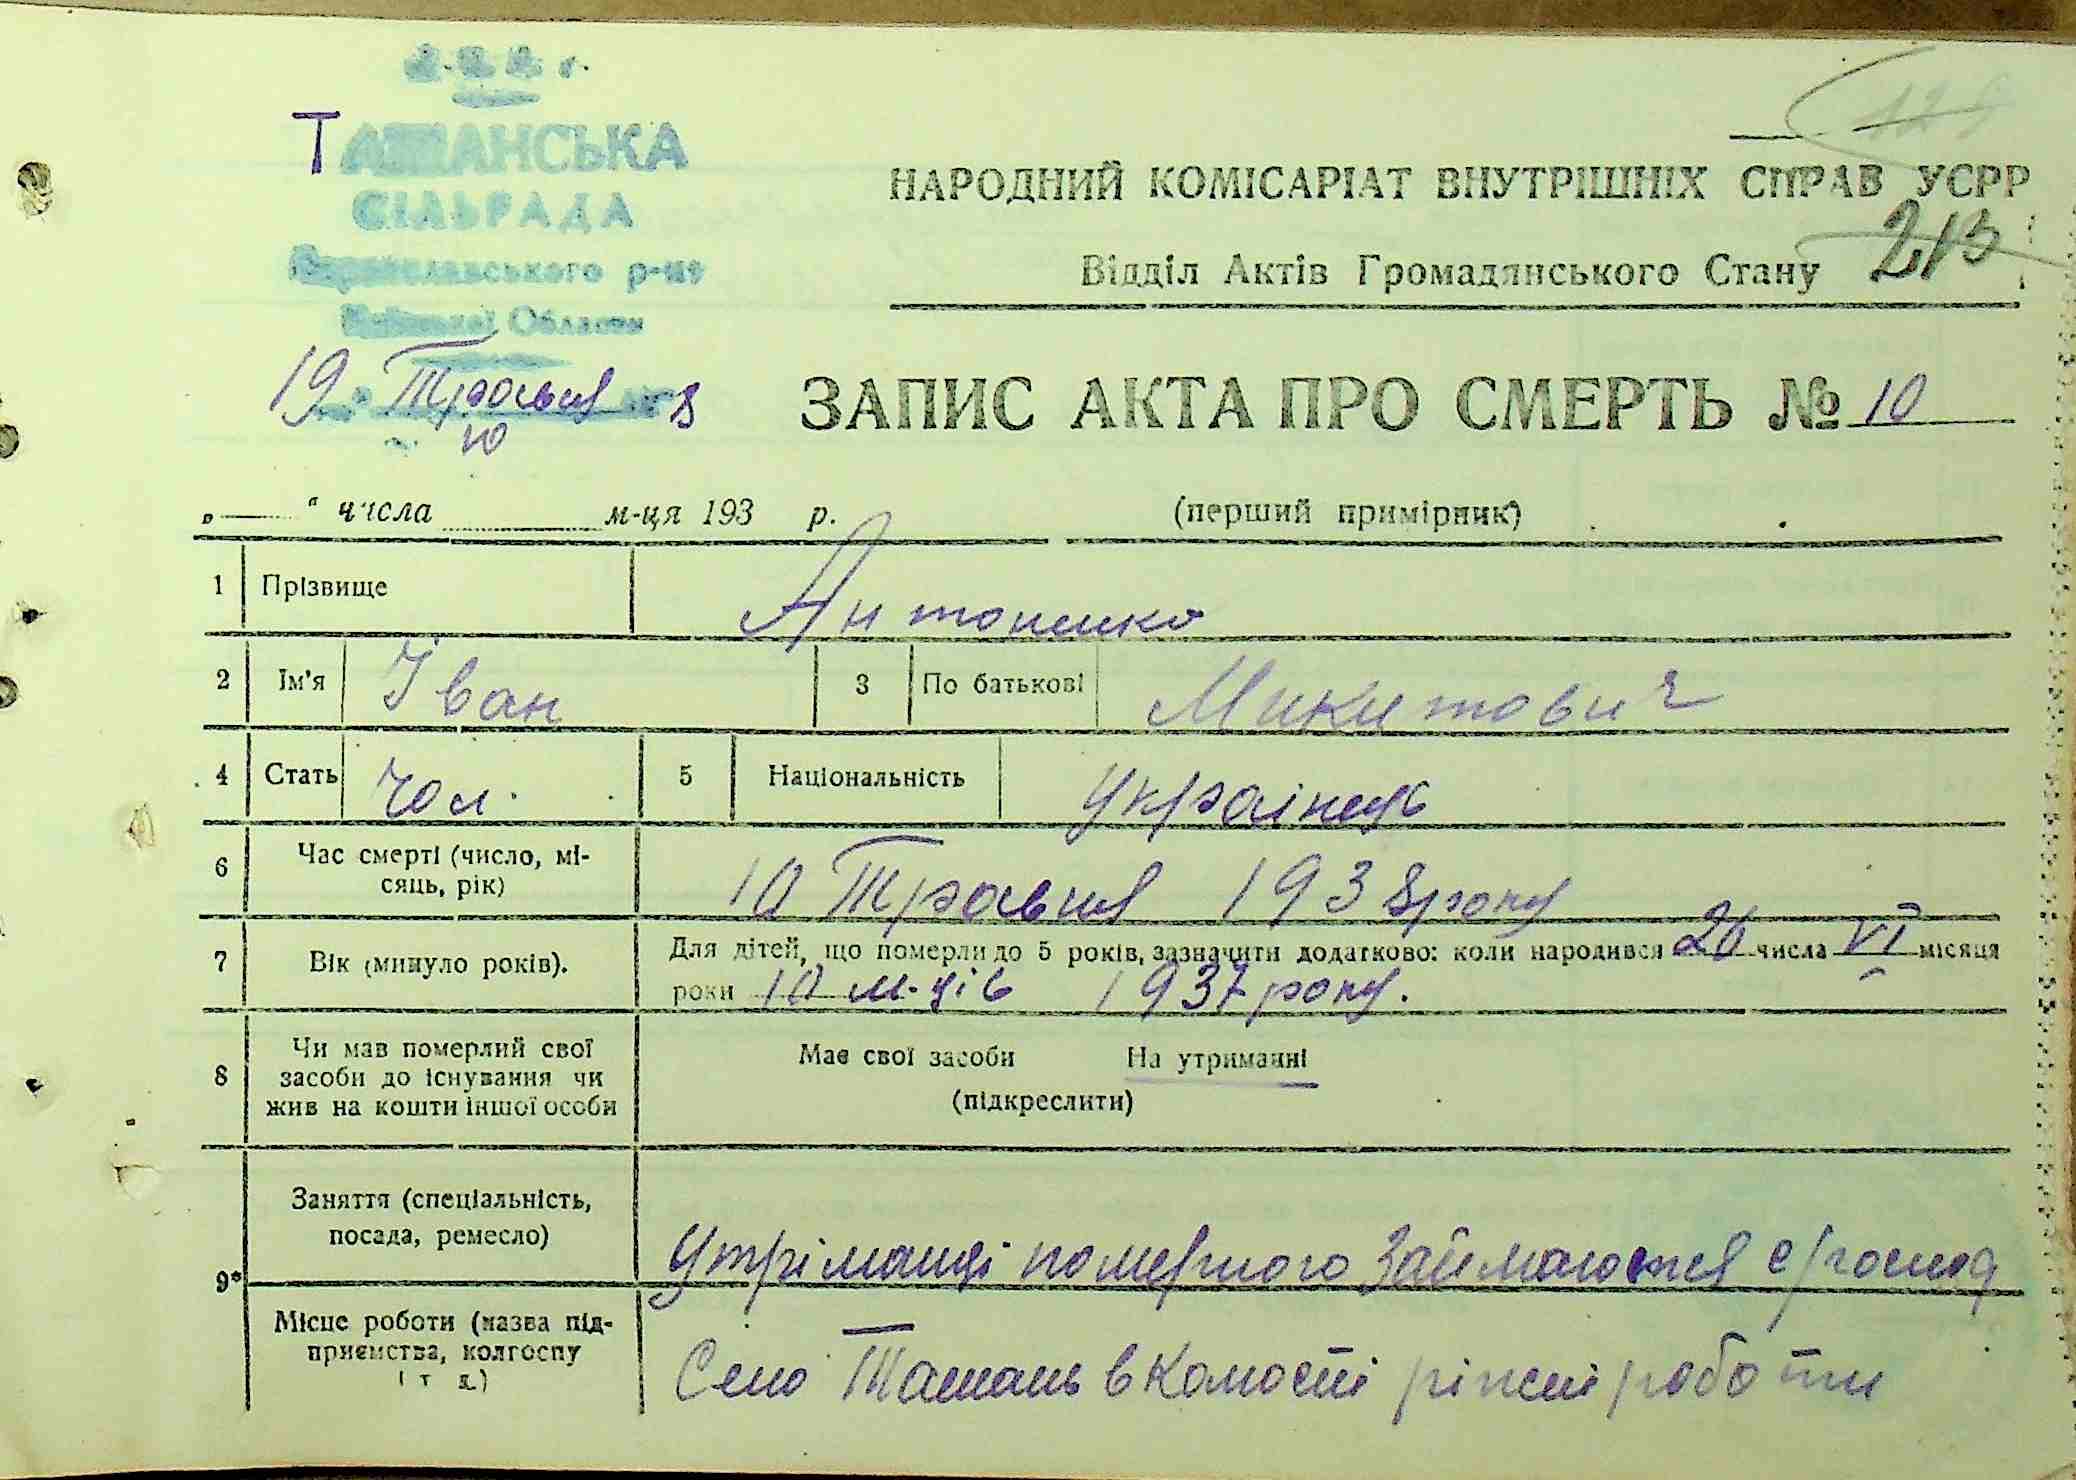 ТАШАНСЬКА
СІЛЬРАДА
Переяславського р-ну
Київської Области
19 Травня 8
10
128
НАРОДНИЙ КОМІСАРІАТ ВНУТРІШНІХ СПРАВ УСРР
Відділ Актів Громадянського Стану 213
ЗАПИС АКТА ПРО СМЕРТЬ № 10
„ “ числа м-ця 193 р. (перший примірник)
1 Прізвище Антоненко
2 Ім'я Іван 3 По батькові Микитович
4 Стать Чол. 5 Національність Українець
6 Час смерті (число, мі-
сяць, рік) 10 Травня 1938 року
7 Вік (минуло років). Для дітей, що померли до 5 років, зазначити додатково: коли народився 26 числа VI місяця
роки 10 м-ців 1937 року.
8 Чи мав померлий свої
засоби до існування чи
жив на кошти іншої особи
Має свої засоби На утриманні
(підкреслити)
9* Заняття (специіальність,
посада, ремесло) Утріманці померлого Займаються с/господ
Місце роботи (назва під-
приємства, колгоспу
і т д.) Село Ташань в Колгоспі ріжні роботи